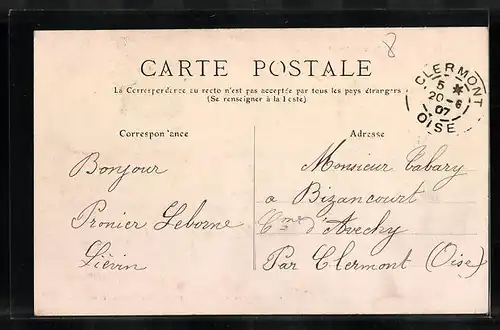 8
CARTE POSTALE
La Correspondance au recto n'est pas acceptée par tous les pays étrangers
(Se renseigner à la Poste)
CLERMONT
5 *
20-6
07
OISE
Correspon'ance
Adresse
Bonjour
Pronier Leborne
Liévin
Monsieur Cabary
a Bizancourt
Cme d'Avechy
Par Clermont (Oise)